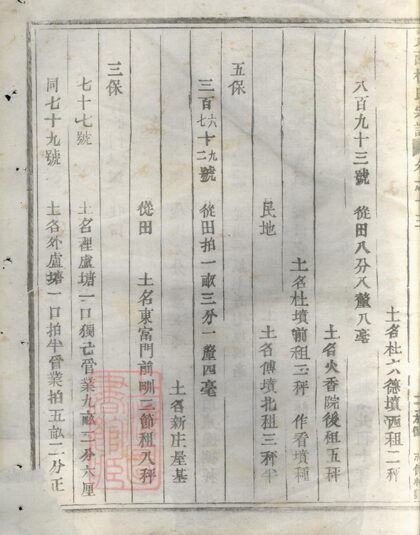 土名杜六德墳西租二秤
八百九十三號 從田八分八釐八毫
土名火香院後租五秤
土名杜墳前租三秤 作看墳種
民地 土名傅墳北租三秤半
五保
三百七六十二九號 從田拍一畝三分一釐四毫
土名新庄屋基
從田 土名東富門前㽟三節租八秤
三保
七十七號 土名裡盧塘一口獨亡管業九畝二分六厘
同七十九號 土名外盧塘一口拍半管業拍五畝二分正